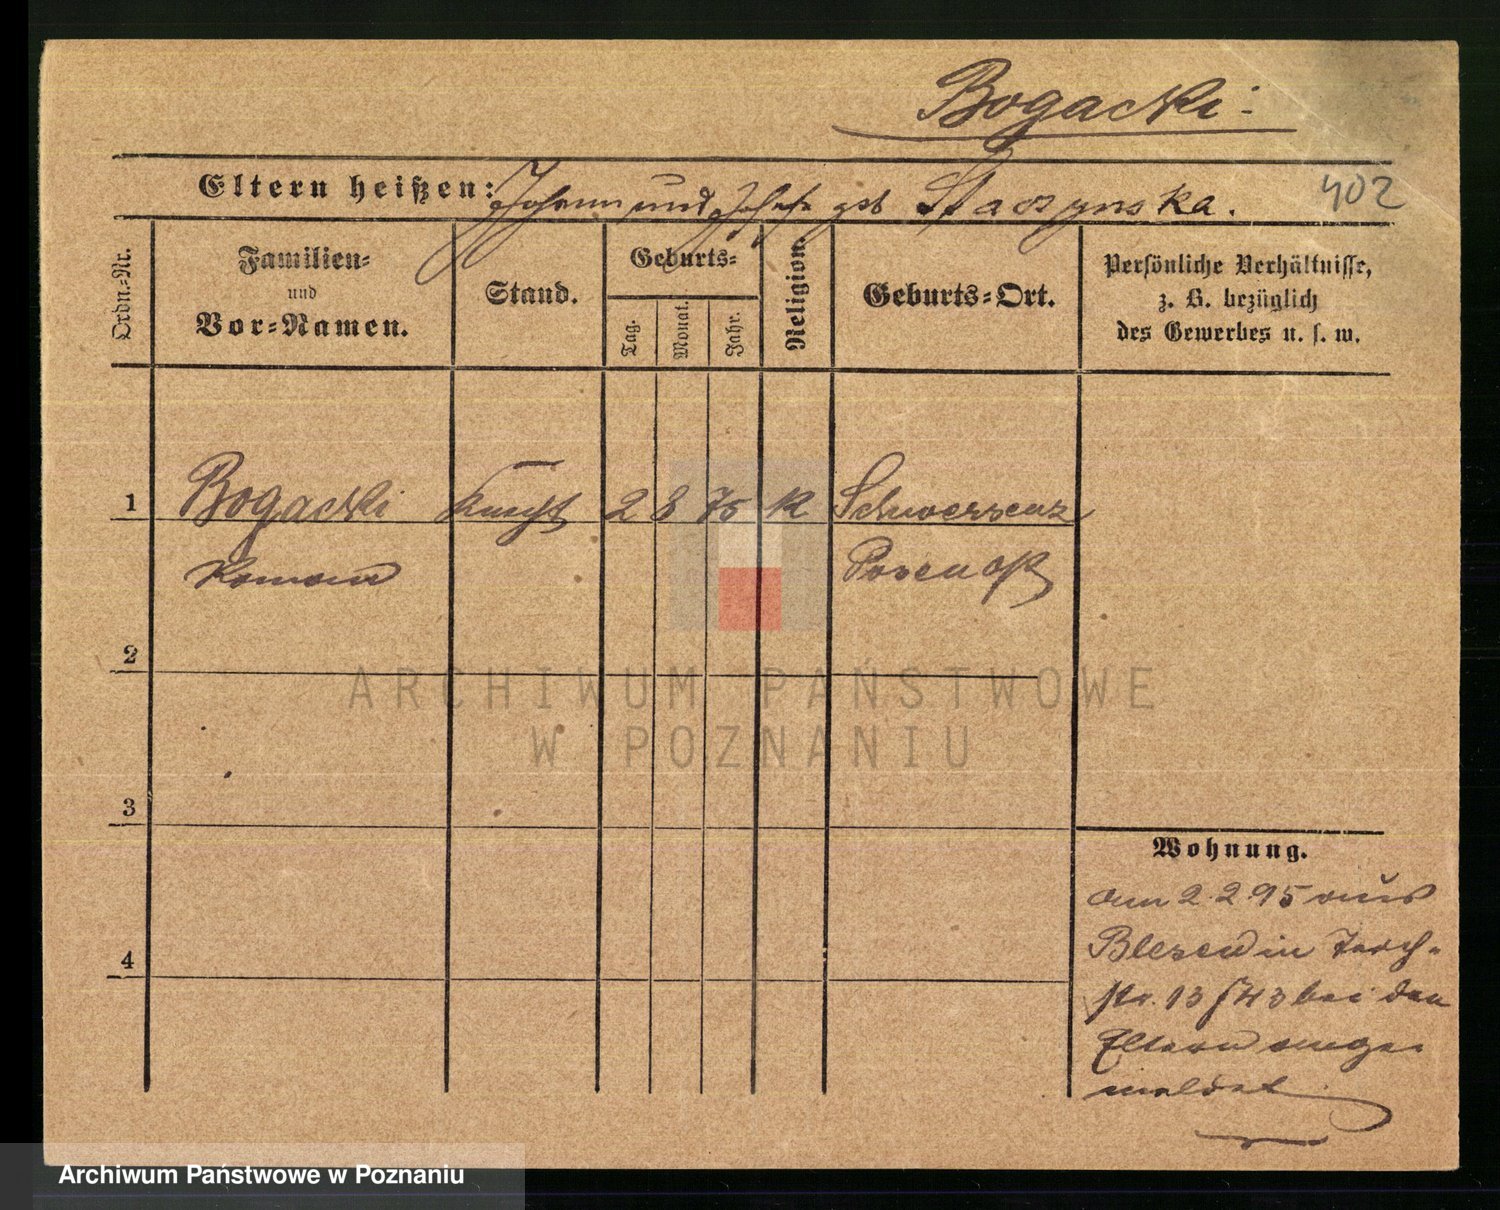 Bogacki.
Eltern heißen: Johann und Josefa geb Staszynska.
402
Ordn.-Nr.
Familien-
und
Vor-Namen.
Stand.
Geburts-
Tag. Monat. Jahr.
Religion.
Geburts-Ort.
Persönliche Verhältnisse,
z. B. bezüglich
des Gewerbes u. s. w.
1 Bogacki Knecht 2 8 75 K Schwersenz
Roman Posen Ost
2
3
4
Wohnung.
am 2.2.95 aus
Blesen in
str. 13 bei den
Eltern ange-
meldet
ARCHIWUM PAŃSTWOWE
W POZNANIU
Archiwum Państwowe w Poznaniu